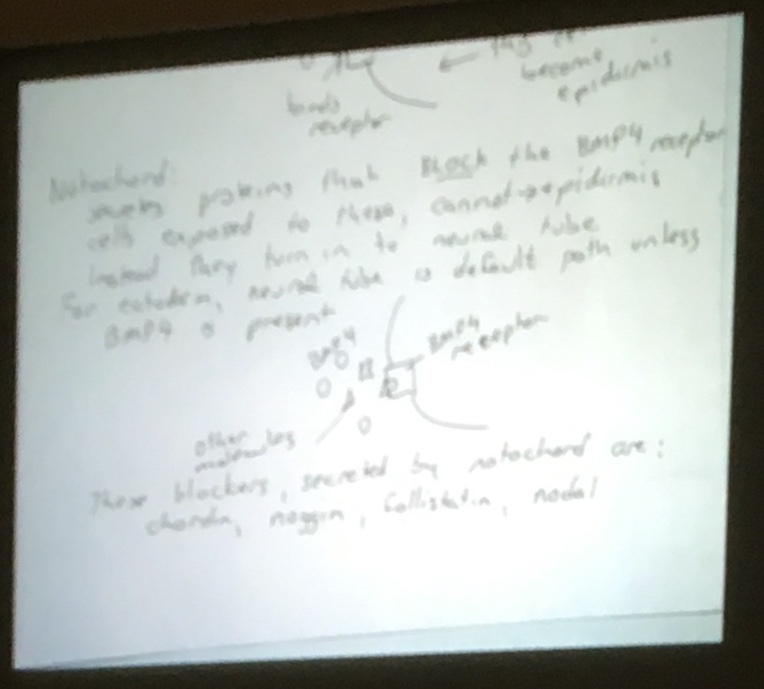 become
epidermis
binds
receptor
Notochord:
secretes proteins that BLOCK the BMP4 receptor
cells exposed to these, cannot → epidermis
instead they turn in to neural tube
For ectoderm, neural tube is default path unless
BMP4 is present
BMP4
BMP4
receptor
other
molecules
These blockers, secreted by notochord are:
chordin, noggin, follistatin, nodal